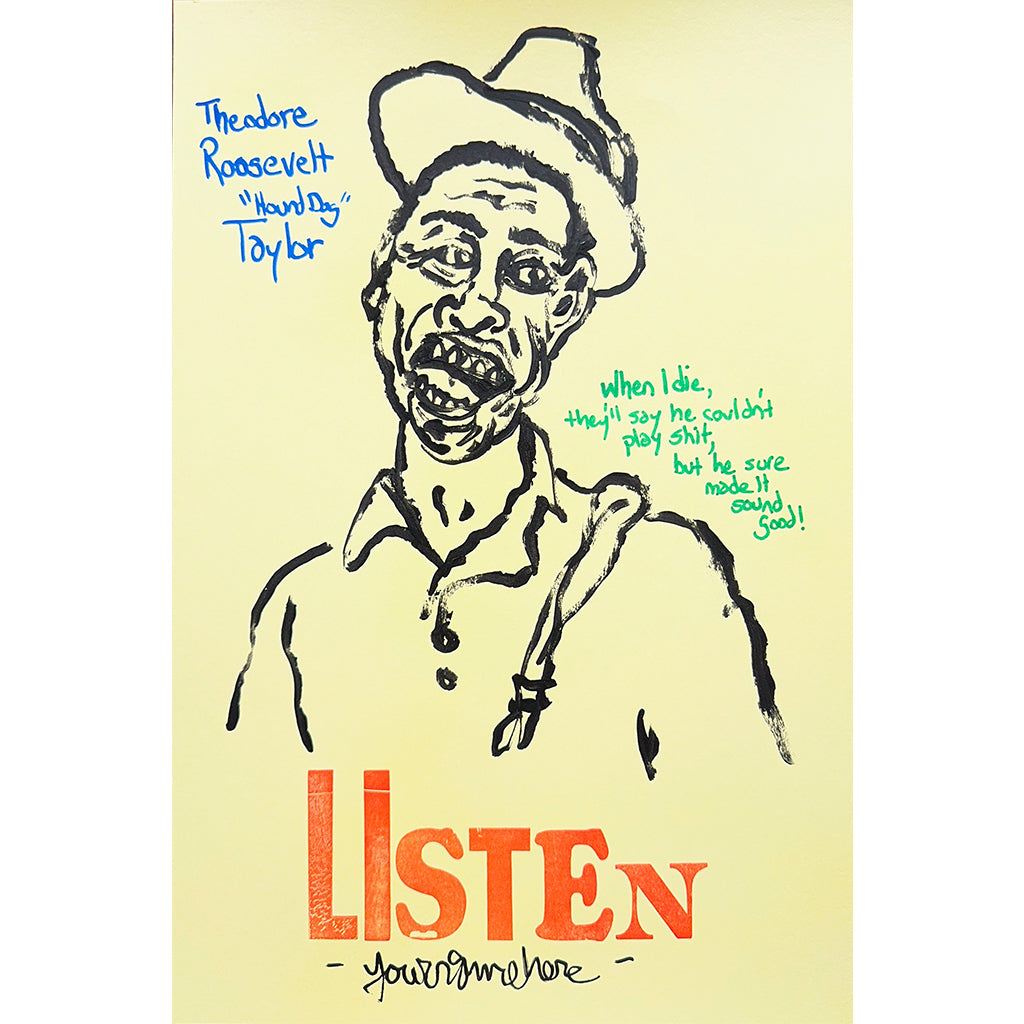 Theodore
Roosevelt
"Hound Dog"
Taylor
When I die,
they'll say he couldn't
play shit,
but he sure
made it
sound
good!
LISTEN